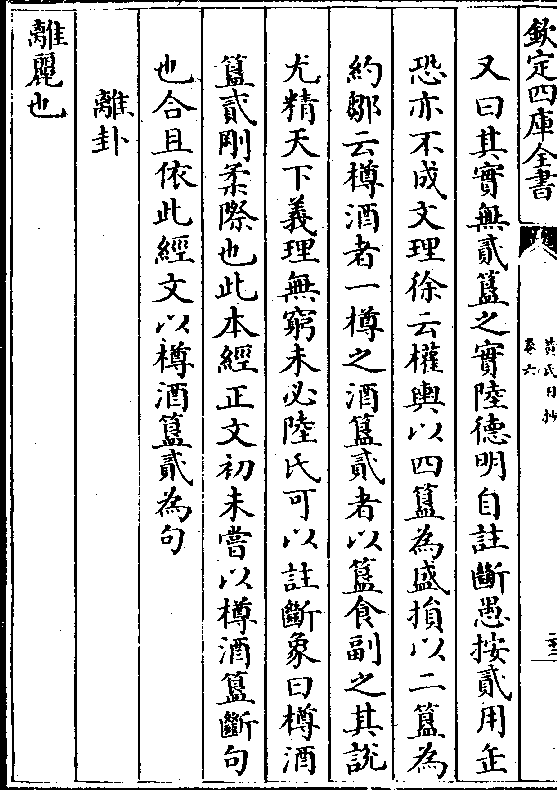 欽定四庫全書
黃氏日抄
卷六
又曰其實無貳簋之實陸德明自註斷愚按貳用缶
恐亦不成文理徐云權輿以四簋為盛損以二簋為
約鄒云樽酒者一樽之酒簋貳者以簋食副之其說
尤精天下義理無窮未必陸氏可以註斷象曰樽酒
簋貳剛柔際也此本經正文初未嘗以樽酒簋斷句
也合且依此經文以樽酒簋貳為句
離卦
離麗也